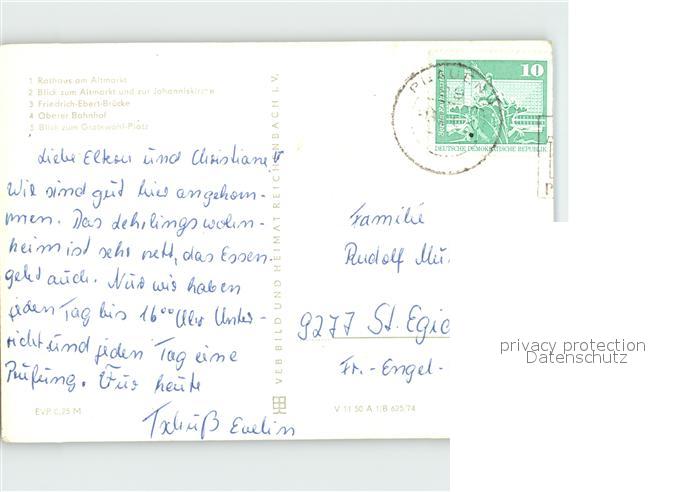 1 Rathaus am Altmarkt
2 Blick zum Altmarkt und zur Johanniskirche
3 Friedrich-Ebert-Brücke
4 Oberer Bahnhof
5 Blick zum Platz
Liebe Eltern und Christiane!
Wir sind gut hier angekom-
men. Das Lehrlingswohn-
heim ist sehr nett, das Essen
geht auch. Nur wir haben
jeden Tag bis 16⁰⁰ Uhr Unter-
richt und jeden Tag eine
Prüfung. Für heute
Tschüß Evelin
EVP 0,25 M
VEB BILD UND HEIMAT REICHENBACH I. V.
V 11 50 A 1/B 625/74
10
DEUTSCHE DEMOKRATISCHE REPUBLIK
Familie
Rudolf Mü
9277 St. Egid
Fr.-Engel-
privacy protection
Datenschutz